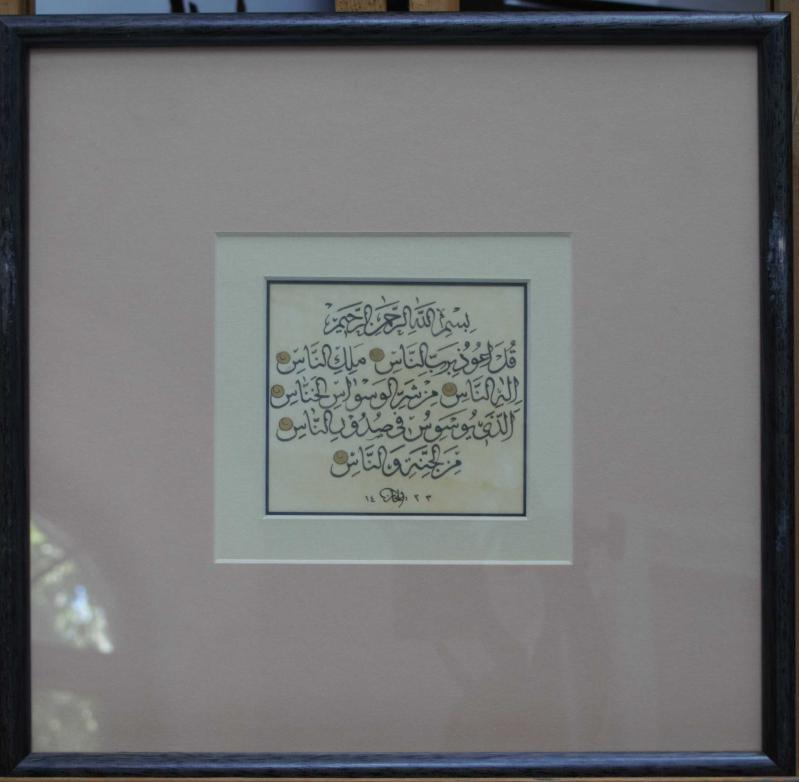 بِسْمِ اللَّهِ الرَّحْمَنِ الرَّحِيمِ
قُلْ أَعُوذُ بِرَبِّ النَّاسِ مَلِكِ النَّاسِ
إِلَهِ النَّاسِ مِنْ شَرِّ الْوَسْوَاسِ الْخَنَّاسِ
الَّذِي يُوَسْوِسُ فِي صُدُورِ النَّاسِ
مِنَ الْجِنَّةِ وَالنَّاسِ
١٤ ٢٣